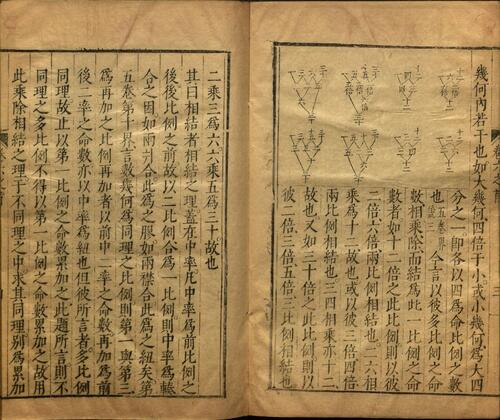 幾何內若干也如大幾何四倍于小或小幾何爲大四
分之一即各以四爲命比例之數
也五卷界三
今言以彼多比例之命
數相乘除而結爲此一比例之命
數者如十二倍之此比例則以彼
二倍六倍兩比例相結也二六相
乘爲十二故也或以彼三倍四倍
兩比例相結也三四相乘亦十二
故也又如三十倍之此比例則以
彼二倍三倍五倍三比例相結也
二乘三爲六六乘五爲三十故也
其曰相結者相結之理蓋在中率凡中率爲前比例之
後後比例之前故以二比例合爲一比例則中率爲輳
合之因如兩爿合此爲之膠如兩襟合此爲之紐矣第
五卷第十界言數幾何爲同理之比例則第一與第三
爲再加之比例再加者以前中二率之命數再加爲前
後二率之命數亦以中率爲紐也但彼所言者多比例
同理故止以第一比例之命數累加之此題所言則不
同理之多比例不得以第一比例之命數累加之故用
此乘除相結之理于不同理之中求其同理別爲累加